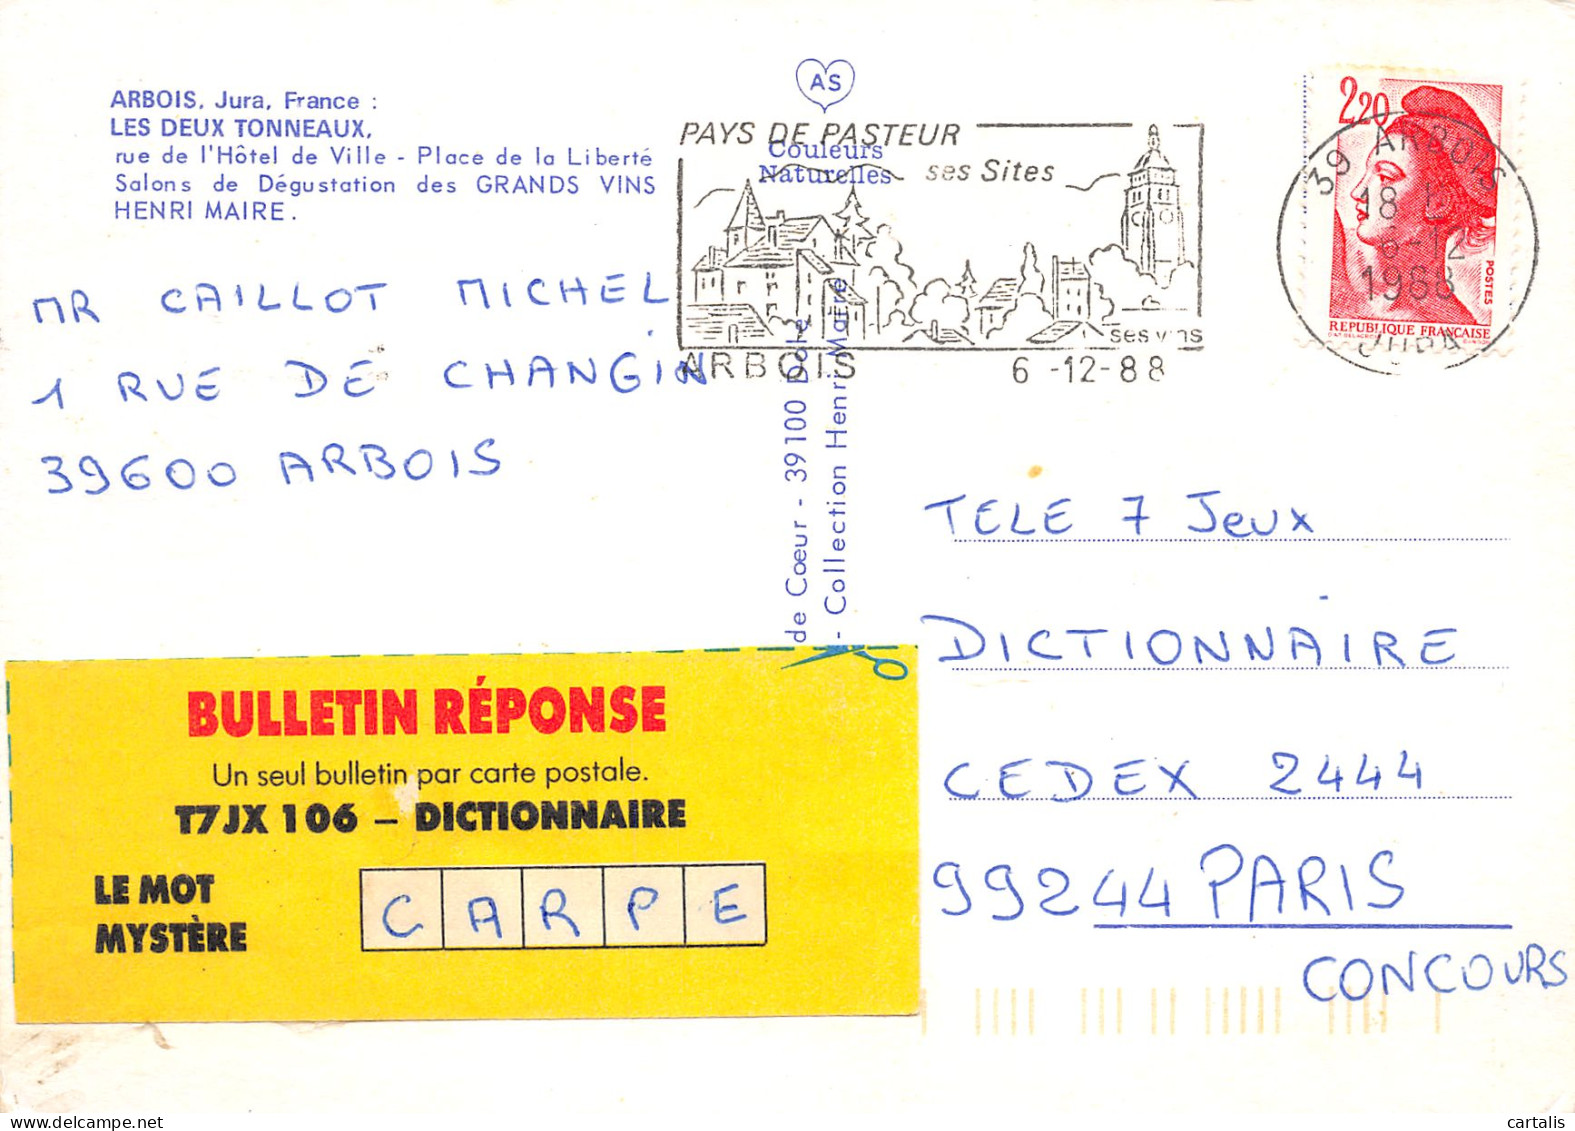 ARBOIS, Jura, France :
LES DEUX TONNEAUX,
rue de l'Hôtel de Ville - Place de la Liberté
Salons de Dégustation des GRANDS VINS
HENRI MAIRE.
AS
Couleurs
Naturelles
PAYS DE PASTEUR
ses Sites
ses vins
ARBOIS 6 -12-88
2,20
POSTES
REPUBLIQUE FRANÇAISE
39 ARBOIS
18 H
6-12
1988
JURA
MR CAILLOT MICHEL
1 RUE DE CHANGIN
39600 ARBOIS
de Coeur - 39100 Dole
- Collection Henri Maire
TELE 7 Jeux
DICTIONNAIRE
CEDEX 2444
99244 PARIS
CONCOURS
BULLETIN RÉPONSE
Un seul bulletin par carte postale.
T7JX 106 – DICTIONNAIRE
LE MOT
MYSTÈRE
CARPE
cartalis